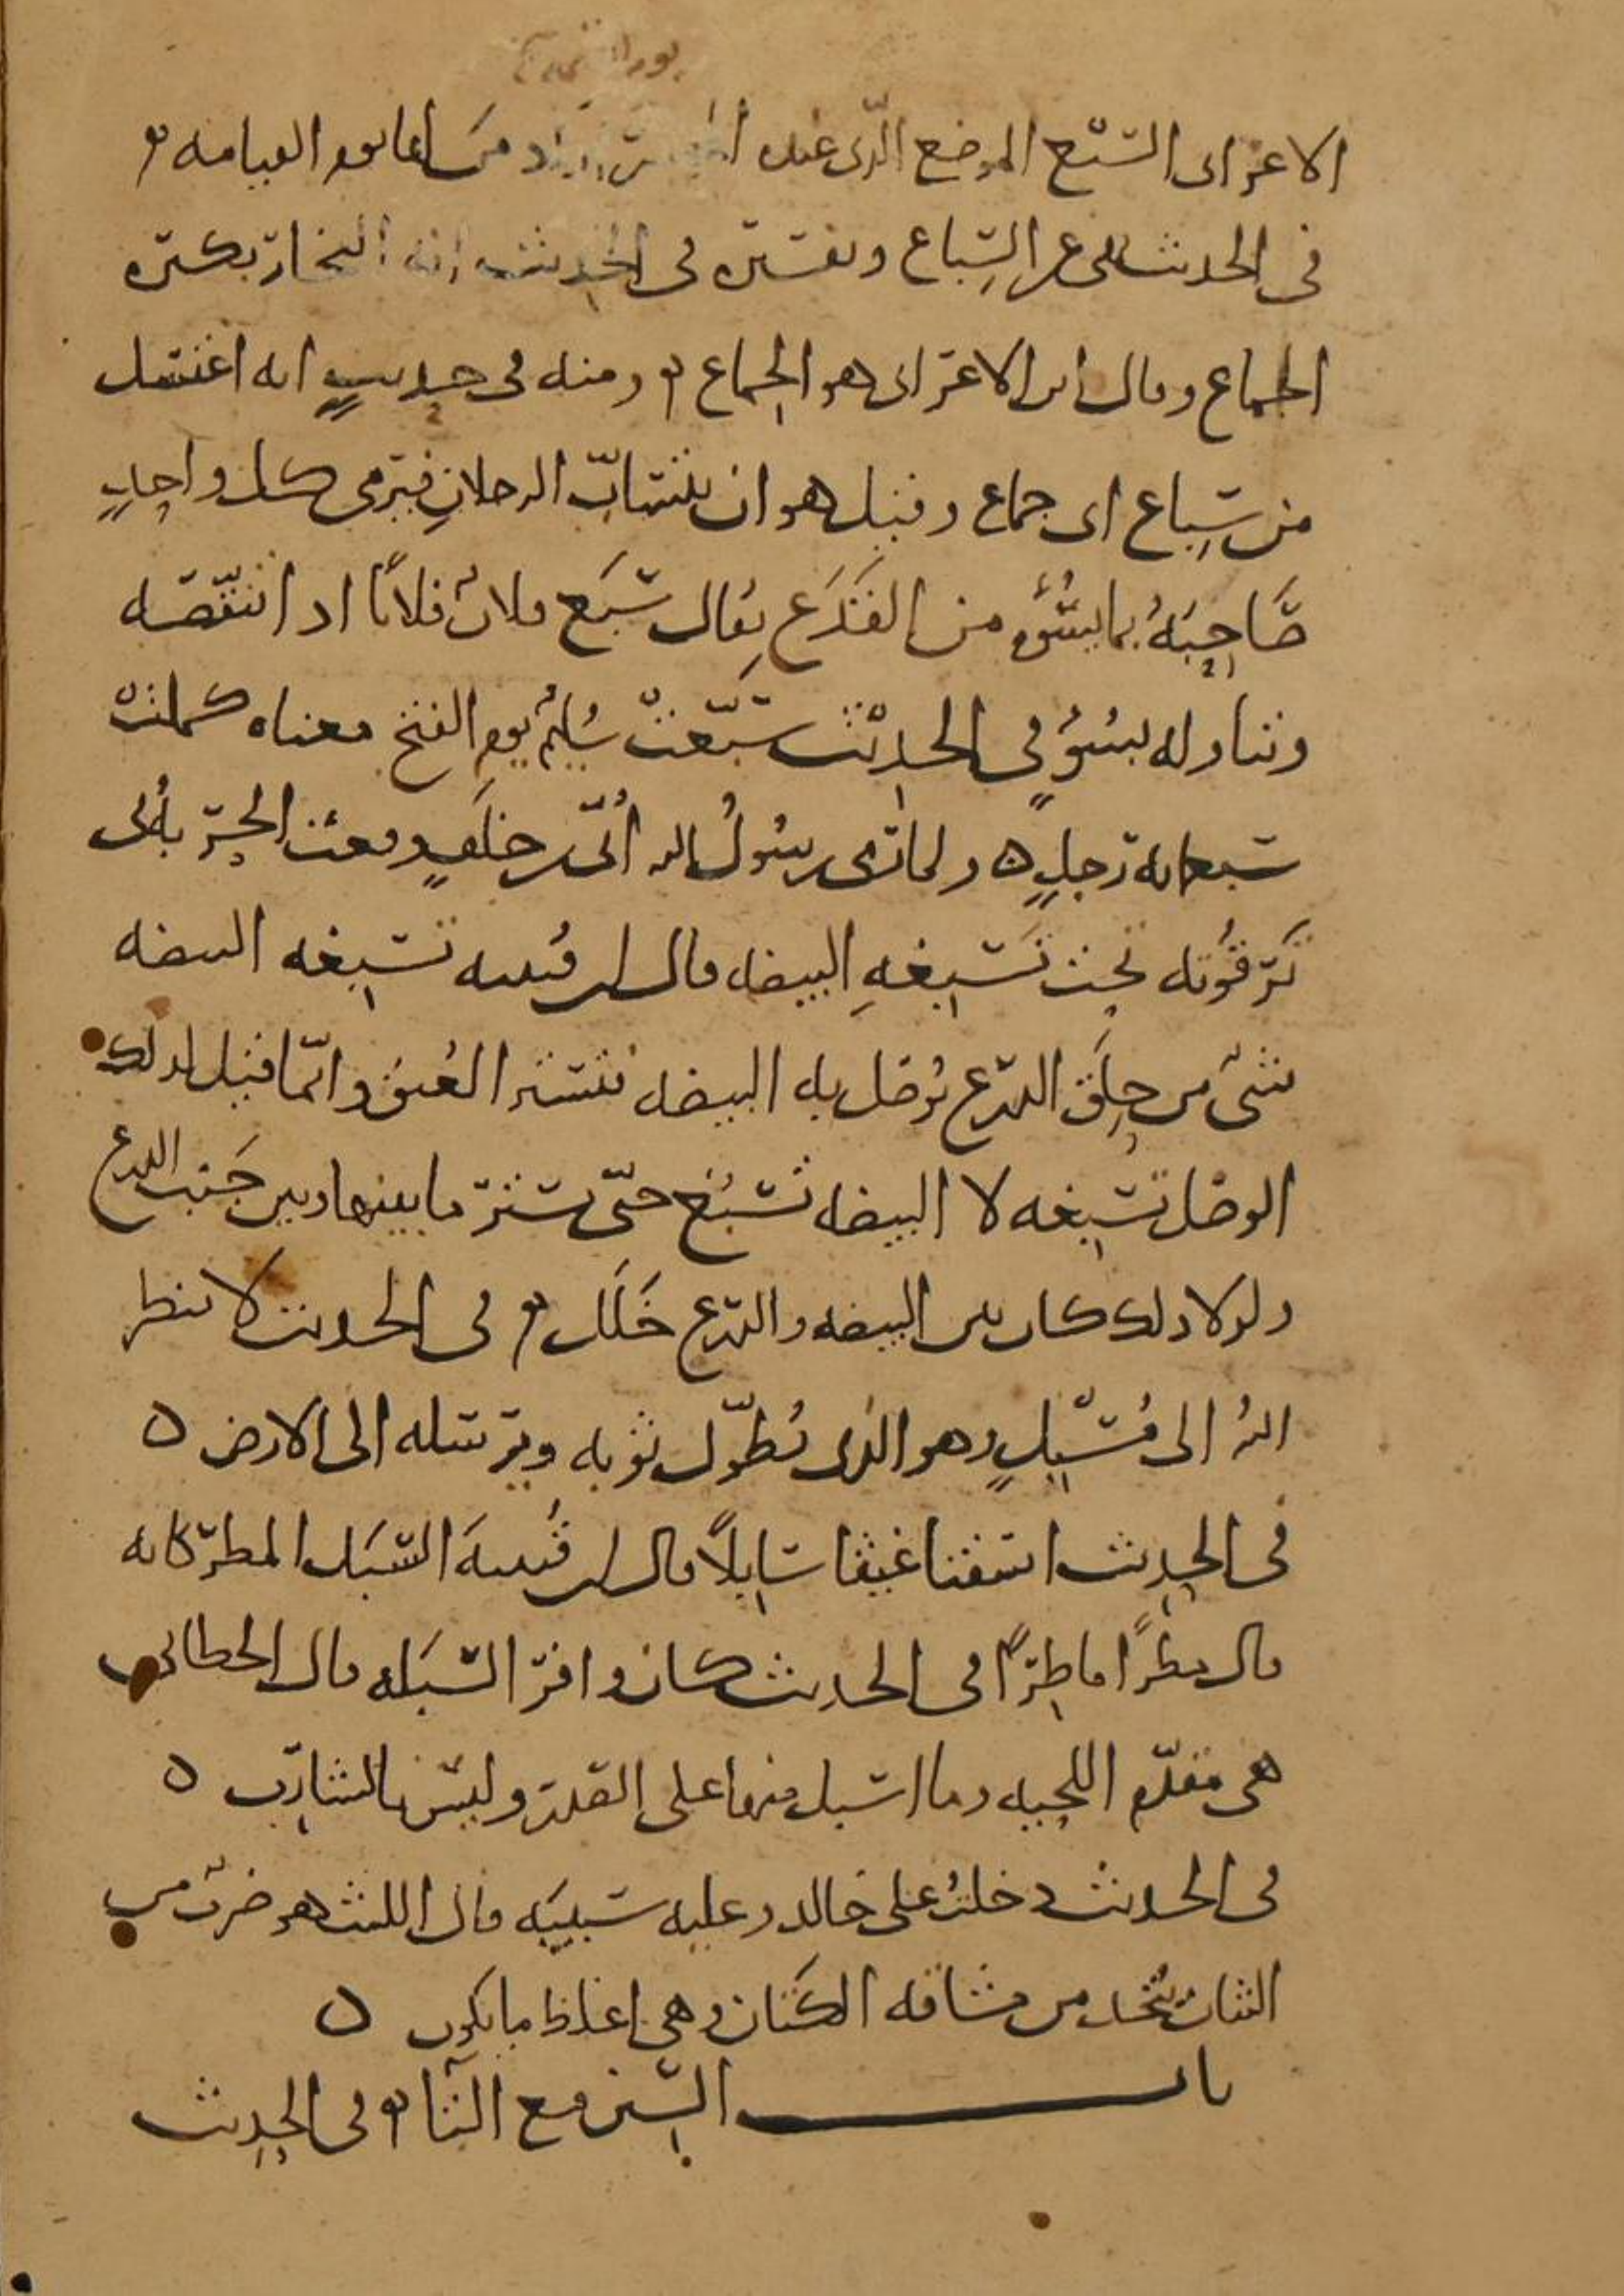 الاعرابى السبع الموضع الذى عنده المحشر اراد من لها يوم القيامه
فى الحديث نهى عن السباع وتفسيره فى الحديث انه الفخار بكثره
الجماع وقال ابن الاعرابى هو الجماع ومنه فى حديث انه اغتسل
من سباع اى جماع وقيل هو ان يتساب الرجلان فيرمى كل واحد
صاحبه بما يسوه من القذع يقال سبع فلان فلانا اذا انتقصه
وتناوله بسوء فى الحديث سبعت سليم يوم الفتح معناه كملت
سبعمايه رجل ولما رمى رسول الله ابى بن خلف وقعت الحربه فى
ترقوته تحت تسبغه البيضه قال ابن قتيبه تسبغه البيضه
شى من حلق الدرع توصل به البيضه فتستر العنق وانما قيل لذلك
الوصل تسبغه لان البيضه تسبغ حتى تستر ما بينها وبين جيب الدرع
ولولا ذلك كان بين البيضه والدرع خلل فى الحديث لا ينظر
الله الى مسبل وهو الذى يطول ثوبه ويرسله الى الارض
فى الحديث اسقنا غيثا سابلا قال ابن قتيبه السبل المطر كانه
قال مطرا ماطرا فى الحديث كان وافر السبله قال الخطابى
هى مقدم اللحيه وما اسبل منها على الصدر وليس بالشارب
فى الحديث دخلت على خالد وعليه سبيبه قال الليث هو ضرب من
الثياب يتخذ من مشاقه الكتان وهى اغلظ ما يكون
باب السين مع التا فى الحديث